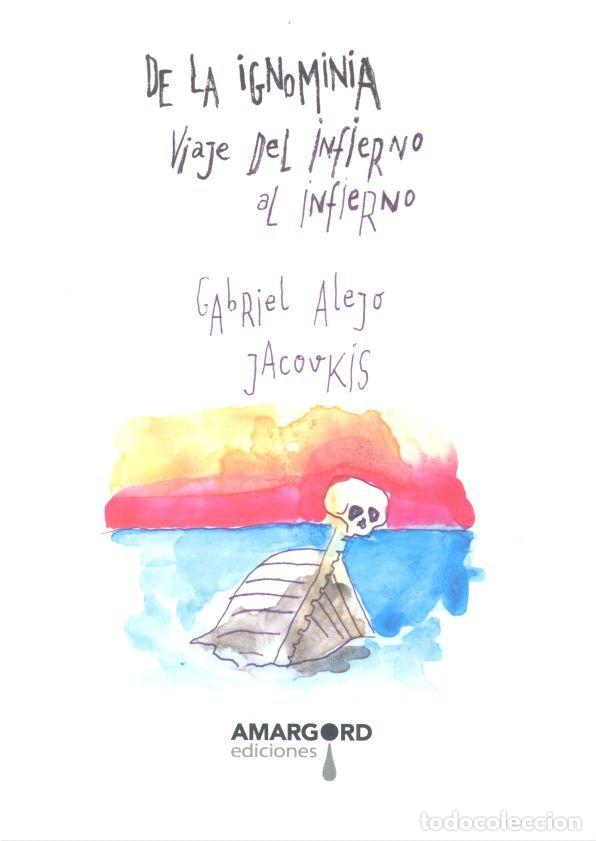 DE LA IGNOMINIA
Viaje DEL INFIERNO
aL INFIERNO
GAbRiel Alejo
JACOVKÍS
AMARGORD
ediciones
todocoleccion